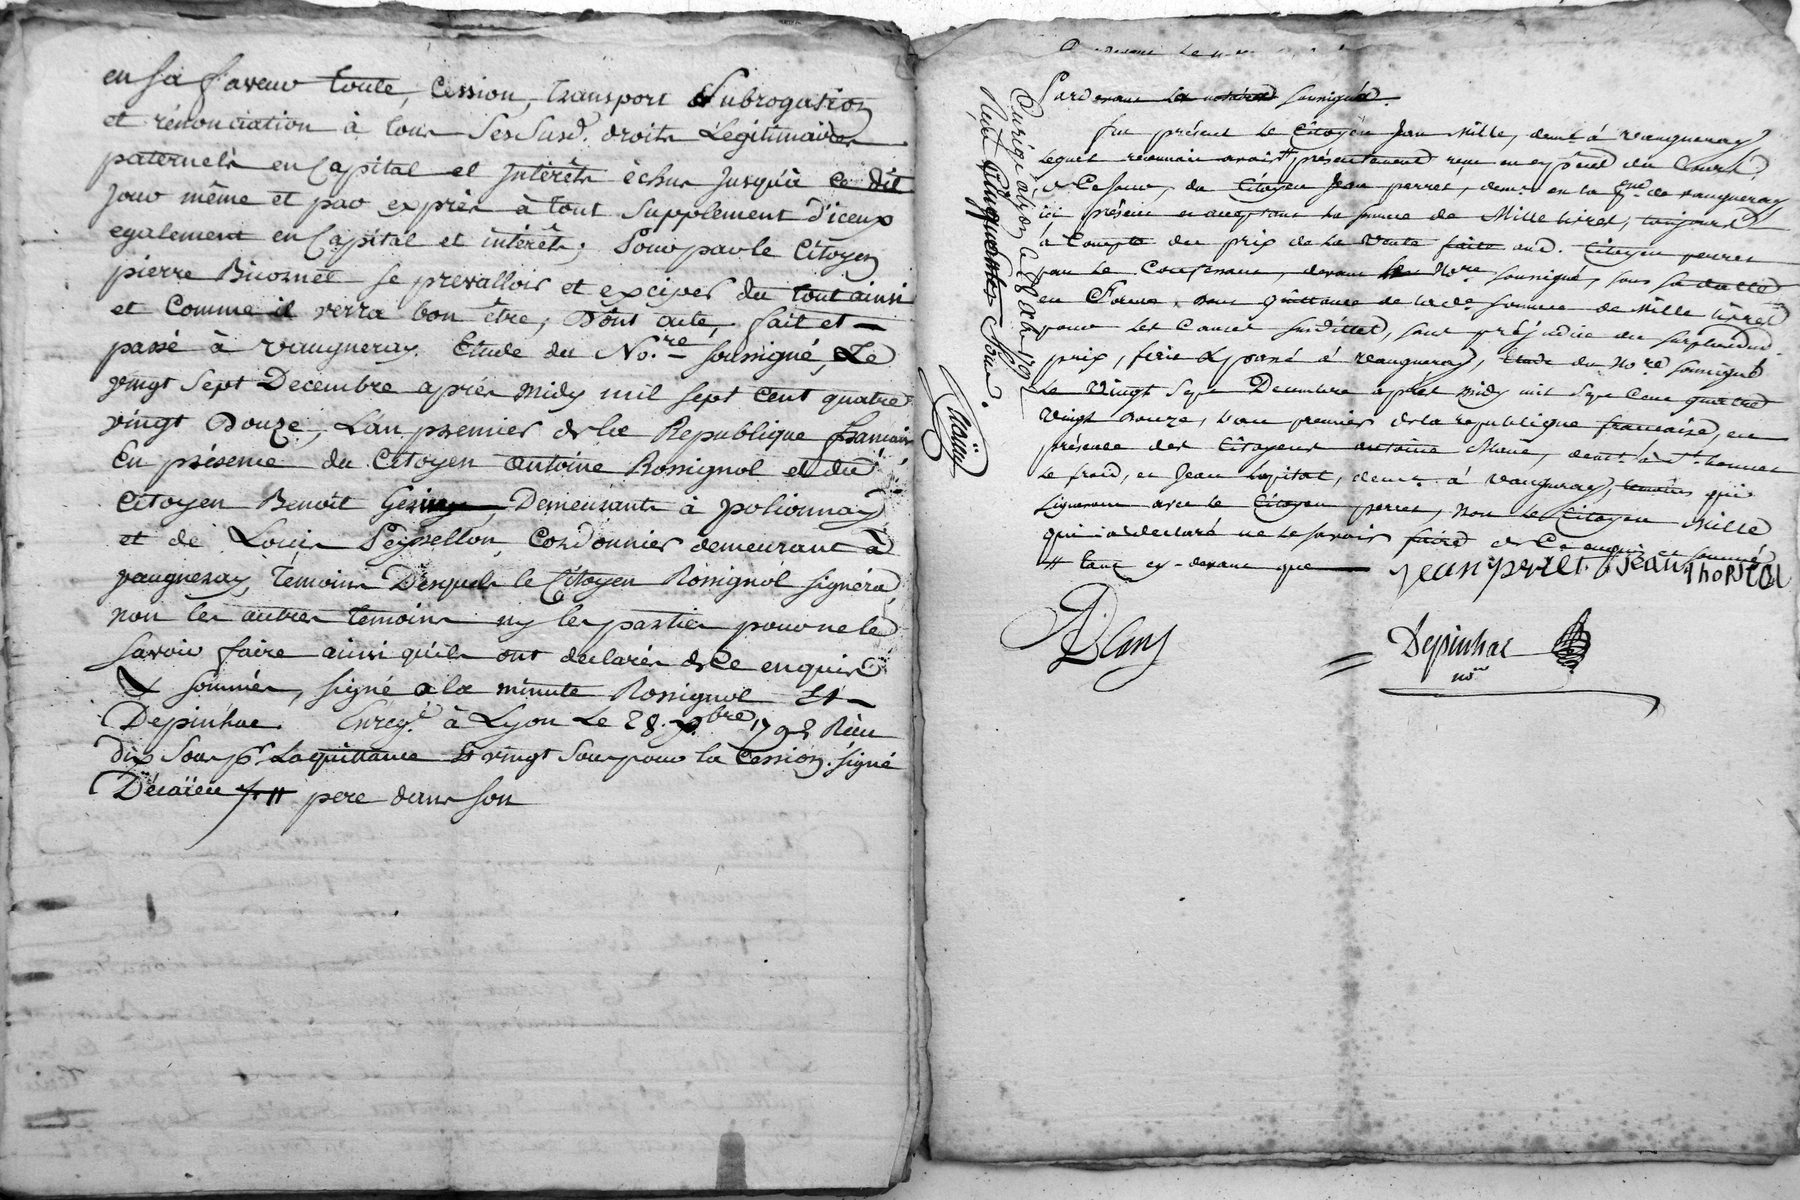 en sa faveur toute, Cession, transport subrogation
et rénonciation à tous ses susd. droits Légitimaires
paternels en Capital et Intérêts échus jusqu'à ce dit
jour même et par exprès à tout supplement d'iceux
egalement en Capital et intérêts; Pour par le Citoyen
pierre Bicornet se prevalloir et exciper du tout ainsi
et Comme il verra bon être, Dont acte, fait et
passé à vaugneray. Etude du No.re soussigné, Le
vingt sept Decembre après midy mil sept Cent quatre
vingt Douze, L'an premier de la Republique francaise
En présence du Citoyen antoine Rossignol et du
Citoyen Benoît Demeurants à polionnay
et de Louis Peyssellon, Cordonnier demeurant à
vaugneray, Temoins Desquels le Citoyen Rossignol signéra,
non les autres temoins ny les parties pour ne le
savoir faire ainsi qu'ils ont declarés de Ce enquis
& sommés, signé a la minute Rossignol Et
Depinhac. Enregé. à Lyon Le 28. Xbre 1792 Réçu
dix sous pr. La quittance & vingt sous pour la Cession. signé
pere dans son
Pardevant Le notaire soussigné.
fut présent Le Citoyen Jean Mille, demt. à vaugneray
Lequel reconnait avoir présentement reçu en espèces du Cours
de Ce jour, du Citoyen Jean perret, demt. en la de vaugneray
ici présent et acceptant La somme de Mille Livres, toujours
à Compte du prix de La vente faite aud. Citoyen perret
par Le Confessant, devant Le No.re soussigné, sous sa datte
en forme, dont quittance de lade. somme de Mille Livres
pour Les Causes susdittes, sans préjudice du surplus du
prix, fait & passé à vaugneray, Etude du No.re soussigné
Le Vingt Sept Decembre après Midy mil Sept Cent quatre
Vingt Douze, L'an premier de la republique francaise, en
présence des Citoyens antoine demt. à St. bonnet
Le froid, et Jean hopital, demt. à Vaugneray, temoins qui
signeront avec Le Citoyen perret, non Le Citoyen Mille
qui a declaré ne Le savoir faire de Ce enquis et sommé
# tant cy-devant que
Jean perret Jean Lhopital
Depinhac
nore
Enregé à Lyon Le 28 Xbre 1792
Reçu Cinquante Sous.